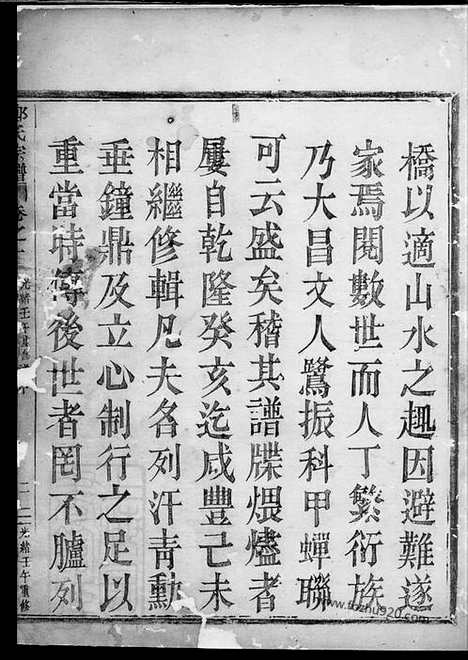 橋以適山水之趣因避難遂
家焉閱數世而人丁繁衍族
乃大昌文人鷺振科甲蟬聯
可云盛矣稽其譜牒煨燼者
屢自乾隆癸亥迄咸豐己未
相繼修輯凡夫各列汗青勳
垂鐘鼎及立心制行之足以
重當時籌後世者罔不臚列
氏宗譜 卷之一
光緒壬午重修
www.fozhu920.com